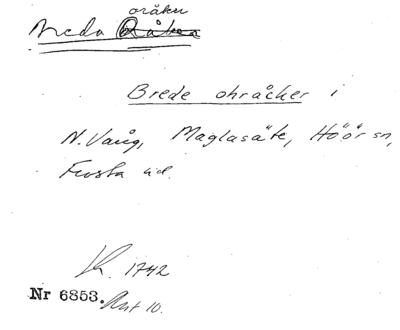 oråker
Neda Råka
Brede ohråcker i
N. Vång, Maglasäte, Höör sn,
Frosta hd.
K. 1742
Nr 6853. Ant 10.